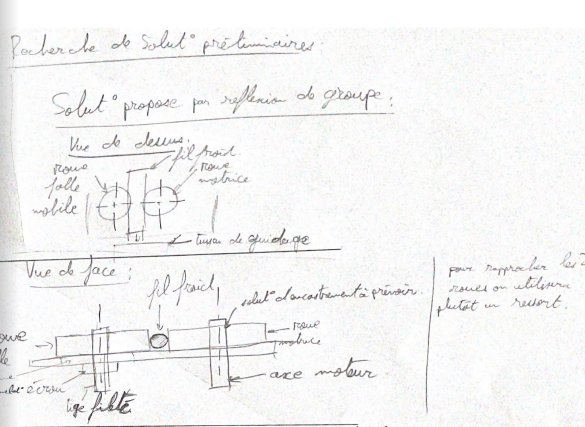 Recherche de Solut° préliminaires.
Solut° propose par reflexion de groupe :
Vue de dessus.
fil froid.
roue
folle
mobile
roue
motrice
tuyau de guidage
Vue de face :
fil froid
solut° d'encastrement à prévoir.
roue
motrice
axe moteur
écrou
tige filetée
pour rapprocher les 2
roues on utilisera
plutot un ressort.